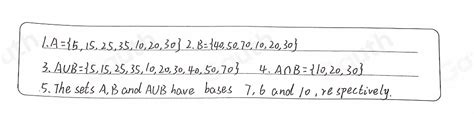 1. A={5, 15, 25, 35, 10, 20, 30} 2. B={40, 50, 70, 10, 20, 30}
3. AUB={5, 15, 25, 35, 10, 20, 30, 40, 50, 70} 4. A∩B={10, 20, 30}
5. The sets A, B and AUB have bases 7, 6 and 10, respectively.